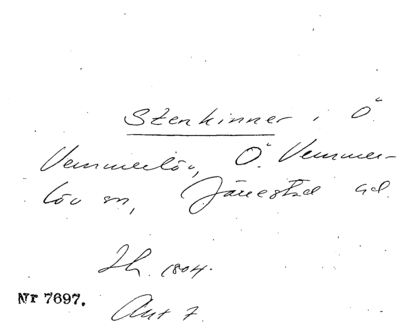 Stenkinner i Ö.
Vemmerlöv, Ö. Vemmer-
löv sn, Järrestad hd.
Jh. 1804.
Nr 7697.
Avt 7.